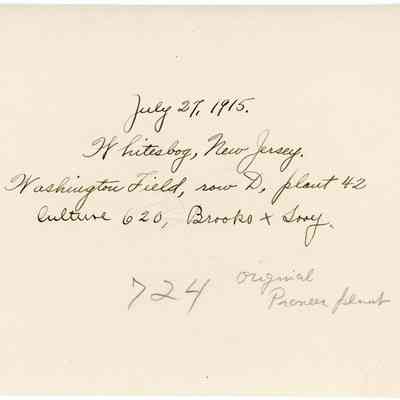 July 27, 1915.
Whitesbog, New Jersey.
Washington Field, row D, plant 42
Culture 620, Brooks x Sooy.
724
original
Pioneer plant